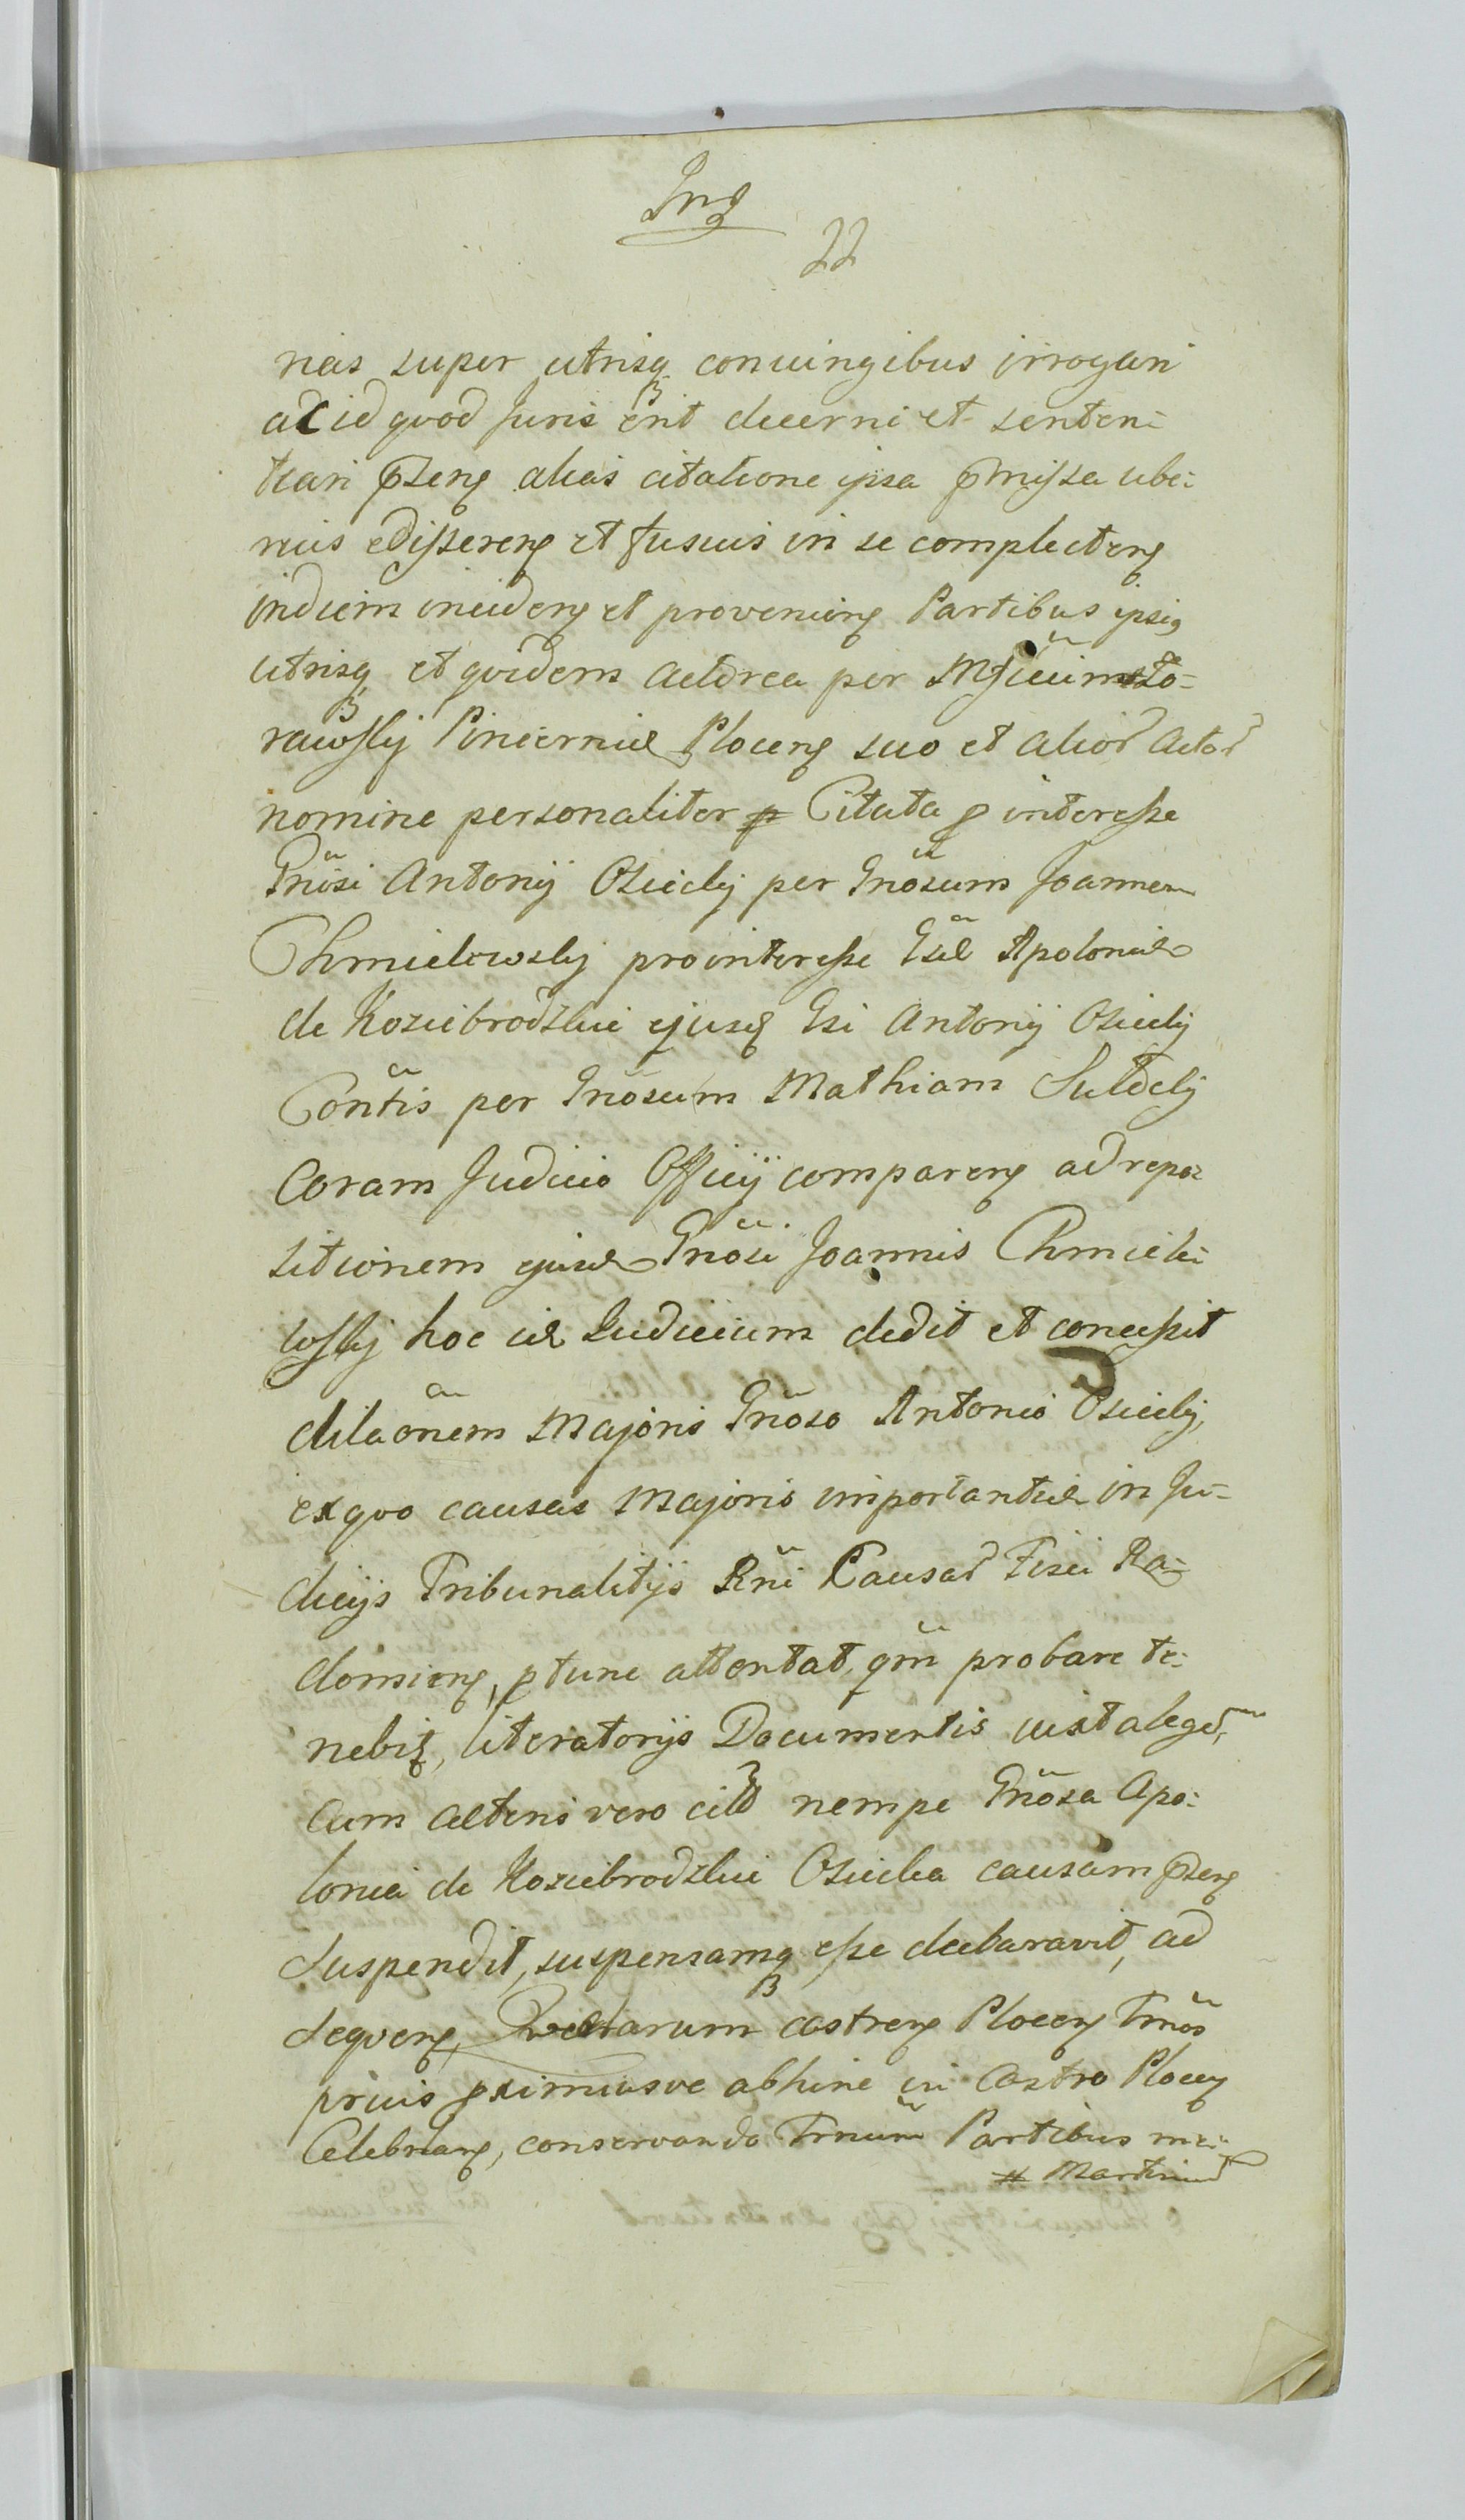 22
nas super utrisq conviingibus irrogari
ac id quod Juris erit decerni et senten-
tiari pſens alias citatione ipsa pmiſsa ube-
rius ediſserens et fusius in se complectens
indiem incidens et proveniens Partibus ipsis
utrisq et quidem Actorea per
rawſkij Pincernæ Plocens suo et alior Actor
nomine personaliter Citata p intereſse
Gnösi Antonij Osiecky per Gnösum Joannem
Chmielewsky pro intereſse Gsæ Apoloniæ
de Koziebrodzkie ejusd Gsi Antonij Osiecky
Contis per Gnösum Mathiam
Coram Judicio Officij comparens ad repo-
sitionem Gnösi Joannis Chmiele-
wſkij hoc Judicium dedit et conceſsit
dilaönem Majoris Gnöso Antonio Osiecky,
ex quo causas Majoris importantiæ in Ju-
dicijs Tribunalitijs Rni Causar Fisci Ra-
domiens, ptunc attentat, qm probare te-
nebit, literatorijs Documentis
Cum altera vero nempe Gnösa Apo-
lonia de Koziebrodzkie Osiecka causam pſens
Suspendit, suspensamq eſse declaravit, ad
Sequens, Querelarum castrens Plocens Trnos
prius pximiusve abhinc in Castro Plocens
Celebrans, conservando Trnum Partibus me-
# Martinus